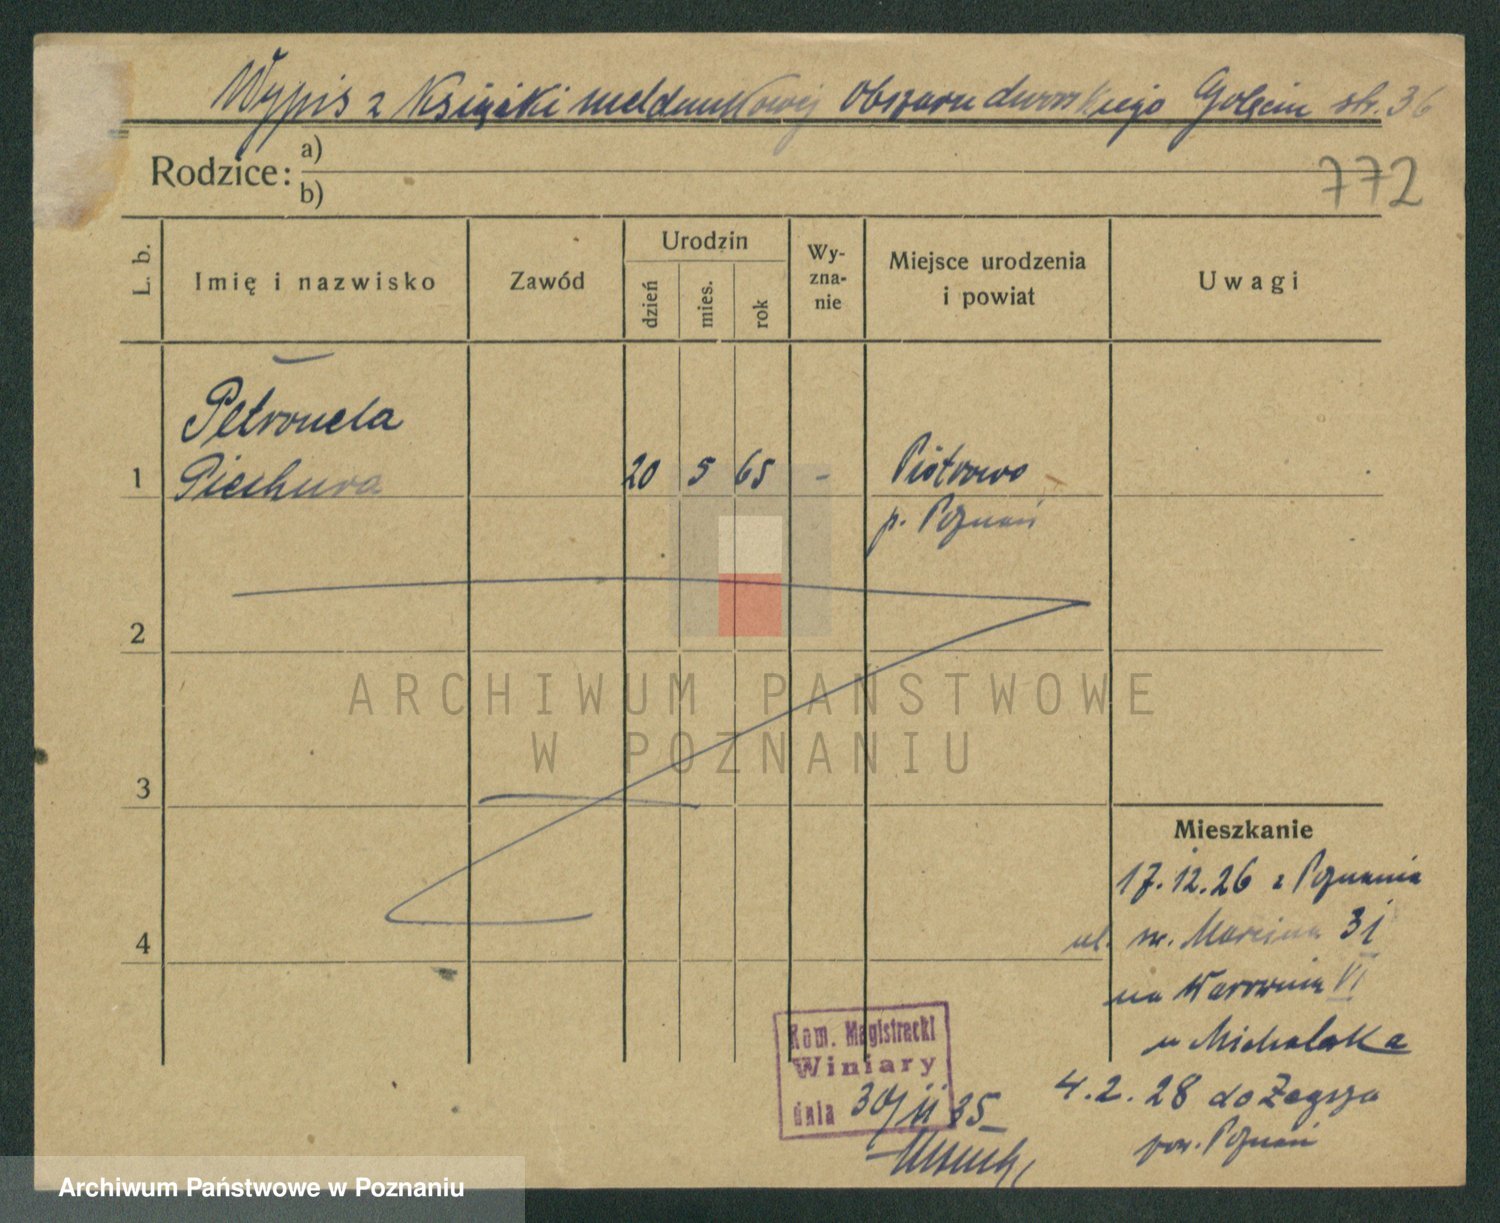 Wypis z książki meldunkowej obszaru dworskiego Golęcin str. 36
Rodzice:
a)
b)
772
L. b.
Imię i nazwisko
Zawód
Urodzin
dzień
mies.
rok
Wy-
zna-
nie
Miejsce urodzenia
i powiat
Uwagi
Petronela
1 Piechura 20 5 65 - Piotrowo
p. Poznań
2
ARCHIWUM PAŃSTWOWE
W POZNANIU
3
Mieszkanie
17.12.26 z Poznania
4
ul. św. Marcina 31
na Warownia VI
u Michalaka
4.2.28 do
pow. Poznań
Kom. Magistracki
Winiary
dnia 30/11 35
Archiwum Państwowe w Poznaniu